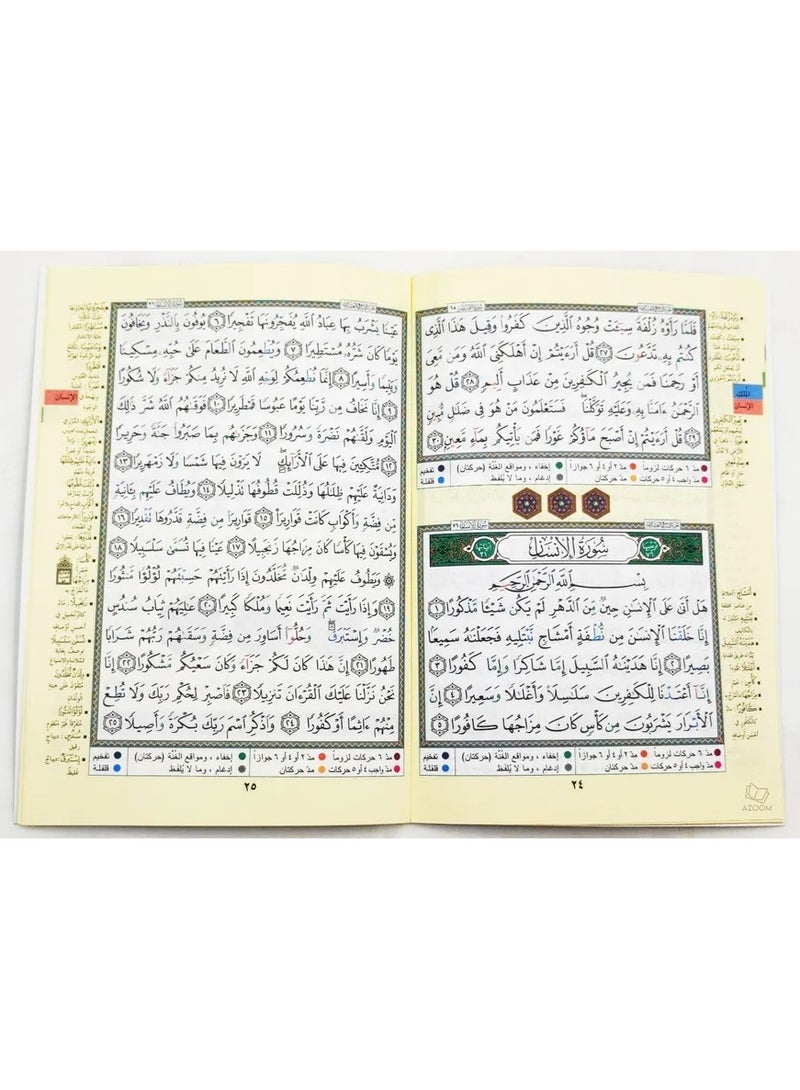 فَلَمَّا رَأَوْهُ زُلْفَةً سِيٓـَٔتْ وُجُوهُ ٱلَّذِينَ كَفَرُوا۟ وَقِيلَ هَٰذَا ٱلَّذِى
كُنتُم بِهِۦ تَدَّعُونَ ٢٧ قُلْ أَرَءَيْتُمْ إِنْ أَهْلَكَنِىَ ٱللَّهُ وَمَن مَّعِىَ
أَوْ رَحِمَنَا فَمَن يُجِيرُ ٱلْكَٰفِرِينَ مِنْ عَذَابٍ أَلِيمٍ ٢٨ قُلْ هُوَ
ٱلرَّحْمَٰنُ ءَامَنَّا بِهِۦ وَعَلَيْهِ تَوَكَّلْنَا فَسَتَعْلَمُونَ مَنْ هُوَ فِى ضَلَٰلٍ مُّبِينٍ
٢٩ قُلْ أَرَءَيْتُمْ إِنْ أَصْبَحَ مَآؤُكُمْ غَوْرًا فَمَن يَأْتِيكُم بِمَآءٍ مَّعِينٍۭ ٣٠
مدّ ٦ حركات لزوماً مدّ ٢ أو ٤ أو ٦ جوازاً إخفاء، ومواقع الغُنَّة (حركتان) تفخيم
مدّ واجب ٤ أو ٥ حركات مدّ حركتان إدغام ، وما لا يُلفَظ قلقلة
سُورَةُ الإِنسَانِ
آياتها ٣١
بِسْمِ ٱللَّهِ ٱلرَّحْمَٰنِ ٱلرَّحِيمِ
هَلْ أَتَىٰ عَلَى ٱلْإِنسَٰنِ حِينٌ مِّنَ ٱلدَّهْرِ لَمْ يَكُن شَيْـًٔا مَّذْكُورًا ١
إِنَّا خَلَقْنَا ٱلْإِنسَٰنَ مِن نُّطْفَةٍ أَمْشَاجٍ نَّبْتَلِيهِ فَجَعَلْنَٰهُ سَمِيعًۢا
بَصِيرًا ٢ إِنَّا هَدَيْنَٰهُ ٱلسَّبِيلَ إِمَّا شَاكِرًا وَإِمَّا كَفُورًا ٣
إِنَّآ أَعْتَدْنَا لِلْكَٰفِرِينَ سَلَٰسِلَا۟ وَأَغْلَٰلًا وَسَعِيرًا ٤ إِنَّ
ٱلْأَبْرَارَ يَشْرَبُونَ مِن كَأْسٍ كَانَ مِزَاجُهَا كَافُورًا ٥
مدّ ٦ حركات لزوماً مدّ ٢ أو ٤ أو ٦ جوازاً إخفاء، ومواقع الغُنَّة (حركتان) تفخيم
مدّ واجب ٤ أو ٥ حركات مدّ حركتان إدغام ، وما لا يُلفَظ قلقلة
٢٤
المُلك
الإنسان
AZOOM
عَيْنًا يَشْرَبُ بِهَا عِبَادُ ٱللَّهِ يُفَجِّرُونَهَا تَفْجِيرًا ٦ يُوفُونَ بِٱلنَّذْرِ وَيَخَافُونَ
يَوْمًا كَانَ شَرُّهُۥ مُسْتَطِيرًا ٧ وَيُطْعِمُونَ ٱلطَّعَامَ عَلَىٰ حُبِّهِۦ مِسْكِينًا
وَيَتِيمًا وَأَسِيرًا ٨ إِنَّمَا نُطْعِمُكُمْ لِوَجْهِ ٱللَّهِ لَا نُرِيدُ مِنكُمْ جَزَآءً وَلَا شُكُورًا
٩ إِنَّا نَخَافُ مِن رَّبِّنَا يَوْمًا عَبُوسًا قَمْطَرِيرًا ١٠ فَوَقَىٰهُمُ ٱللَّهُ شَرَّ ذَٰلِكَ
ٱلْيَوْمِ وَلَقَّىٰهُمْ نَضْرَةً وَسُرُورًا ١١ وَجَزَىٰهُم بِمَا صَبَرُوا۟ جَنَّةً وَحَرِيرًا
١٢ مُّتَّكِـِٔينَ فِيهَا عَلَى ٱلْأَرَآئِكِ لَا يَرَوْنَ فِيهَا شَمْسًا وَلَا زَمْهَرِيرًا ١٣
وَدَانِيَةً عَلَيْهِمْ ظِلَٰلُهَا وَذُلِّلَتْ قُطُوفُهَا تَذْلِيلًا ١٤ وَيُطَافُ عَلَيْهِم بِـَٔانِيَةٍ
مِّن فِضَّةٍ وَأَكْوَابٍ كَانَتْ قَوَارِيرَا۠ ١٥ قَوَارِيرَا۟ مِن فِضَّةٍ قَدَّرُوهَا تَقْدِيرًا ١٦
وَيُسْقَوْنَ فِيهَا كَأْسًا كَانَ مِزَاجُهَا زَنجَبِيلًا ١٧ عَيْنًا فِيهَا تُسَمَّىٰ سَلْسَبِيلًا ١٨
۞ وَيَطُوفُ عَلَيْهِمْ وِلْدَٰنٌ مُّخَلَّدُونَ إِذَا رَأَيْتَهُمْ حَسِبْتَهُمْ لُؤْلُؤًا مَّنثُورًا
١٩ وَإِذَا رَأَيْتَ ثَمَّ رَأَيْتَ نَعِيمًا وَمُلْكًا كَبِيرًا ٢٠ عَٰلِيَهُمْ ثِيَابُ سُندُسٍ
خُضْرٌ وَإِسْتَبْرَقٌ وَحُلُّوٓا۟ أَسَاوِرَ مِن فِضَّةٍ وَسَقَىٰهُمْ رَبُّهُمْ شَرَابًا
طَهُورًا ٢١ إِنَّ هَٰذَا كَانَ لَكُمْ جَزَآءً وَكَانَ سَعْيُكُم مَّشْكُورًا ٢٢
نَحْنُ نَزَّلْنَا عَلَيْكَ ٱلْقُرْءَانَ تَنزِيلًا ٢٣ فَٱصْبِرْ لِحُكْمِ رَبِّكَ وَلَا تُطِعْ
مِنْهُمْ ءَاثِمًا أَوْ كَفُورًا ٢٤ وَٱذْكُرِ ٱسْمَ رَبِّكَ بُكْرَةً وَأَصِيلًا ٢٥
مدّ ٦ حركات لزوماً مدّ ٢ أو ٤ أو ٦ جوازاً إخفاء، ومواقع الغُنَّة (حركتان) تفخيم
مدّ واجب ٤ أو ٥ حركات مدّ حركتان إدغام ، وما لا يُلفَظ قلقلة
٢٥
الإنسان